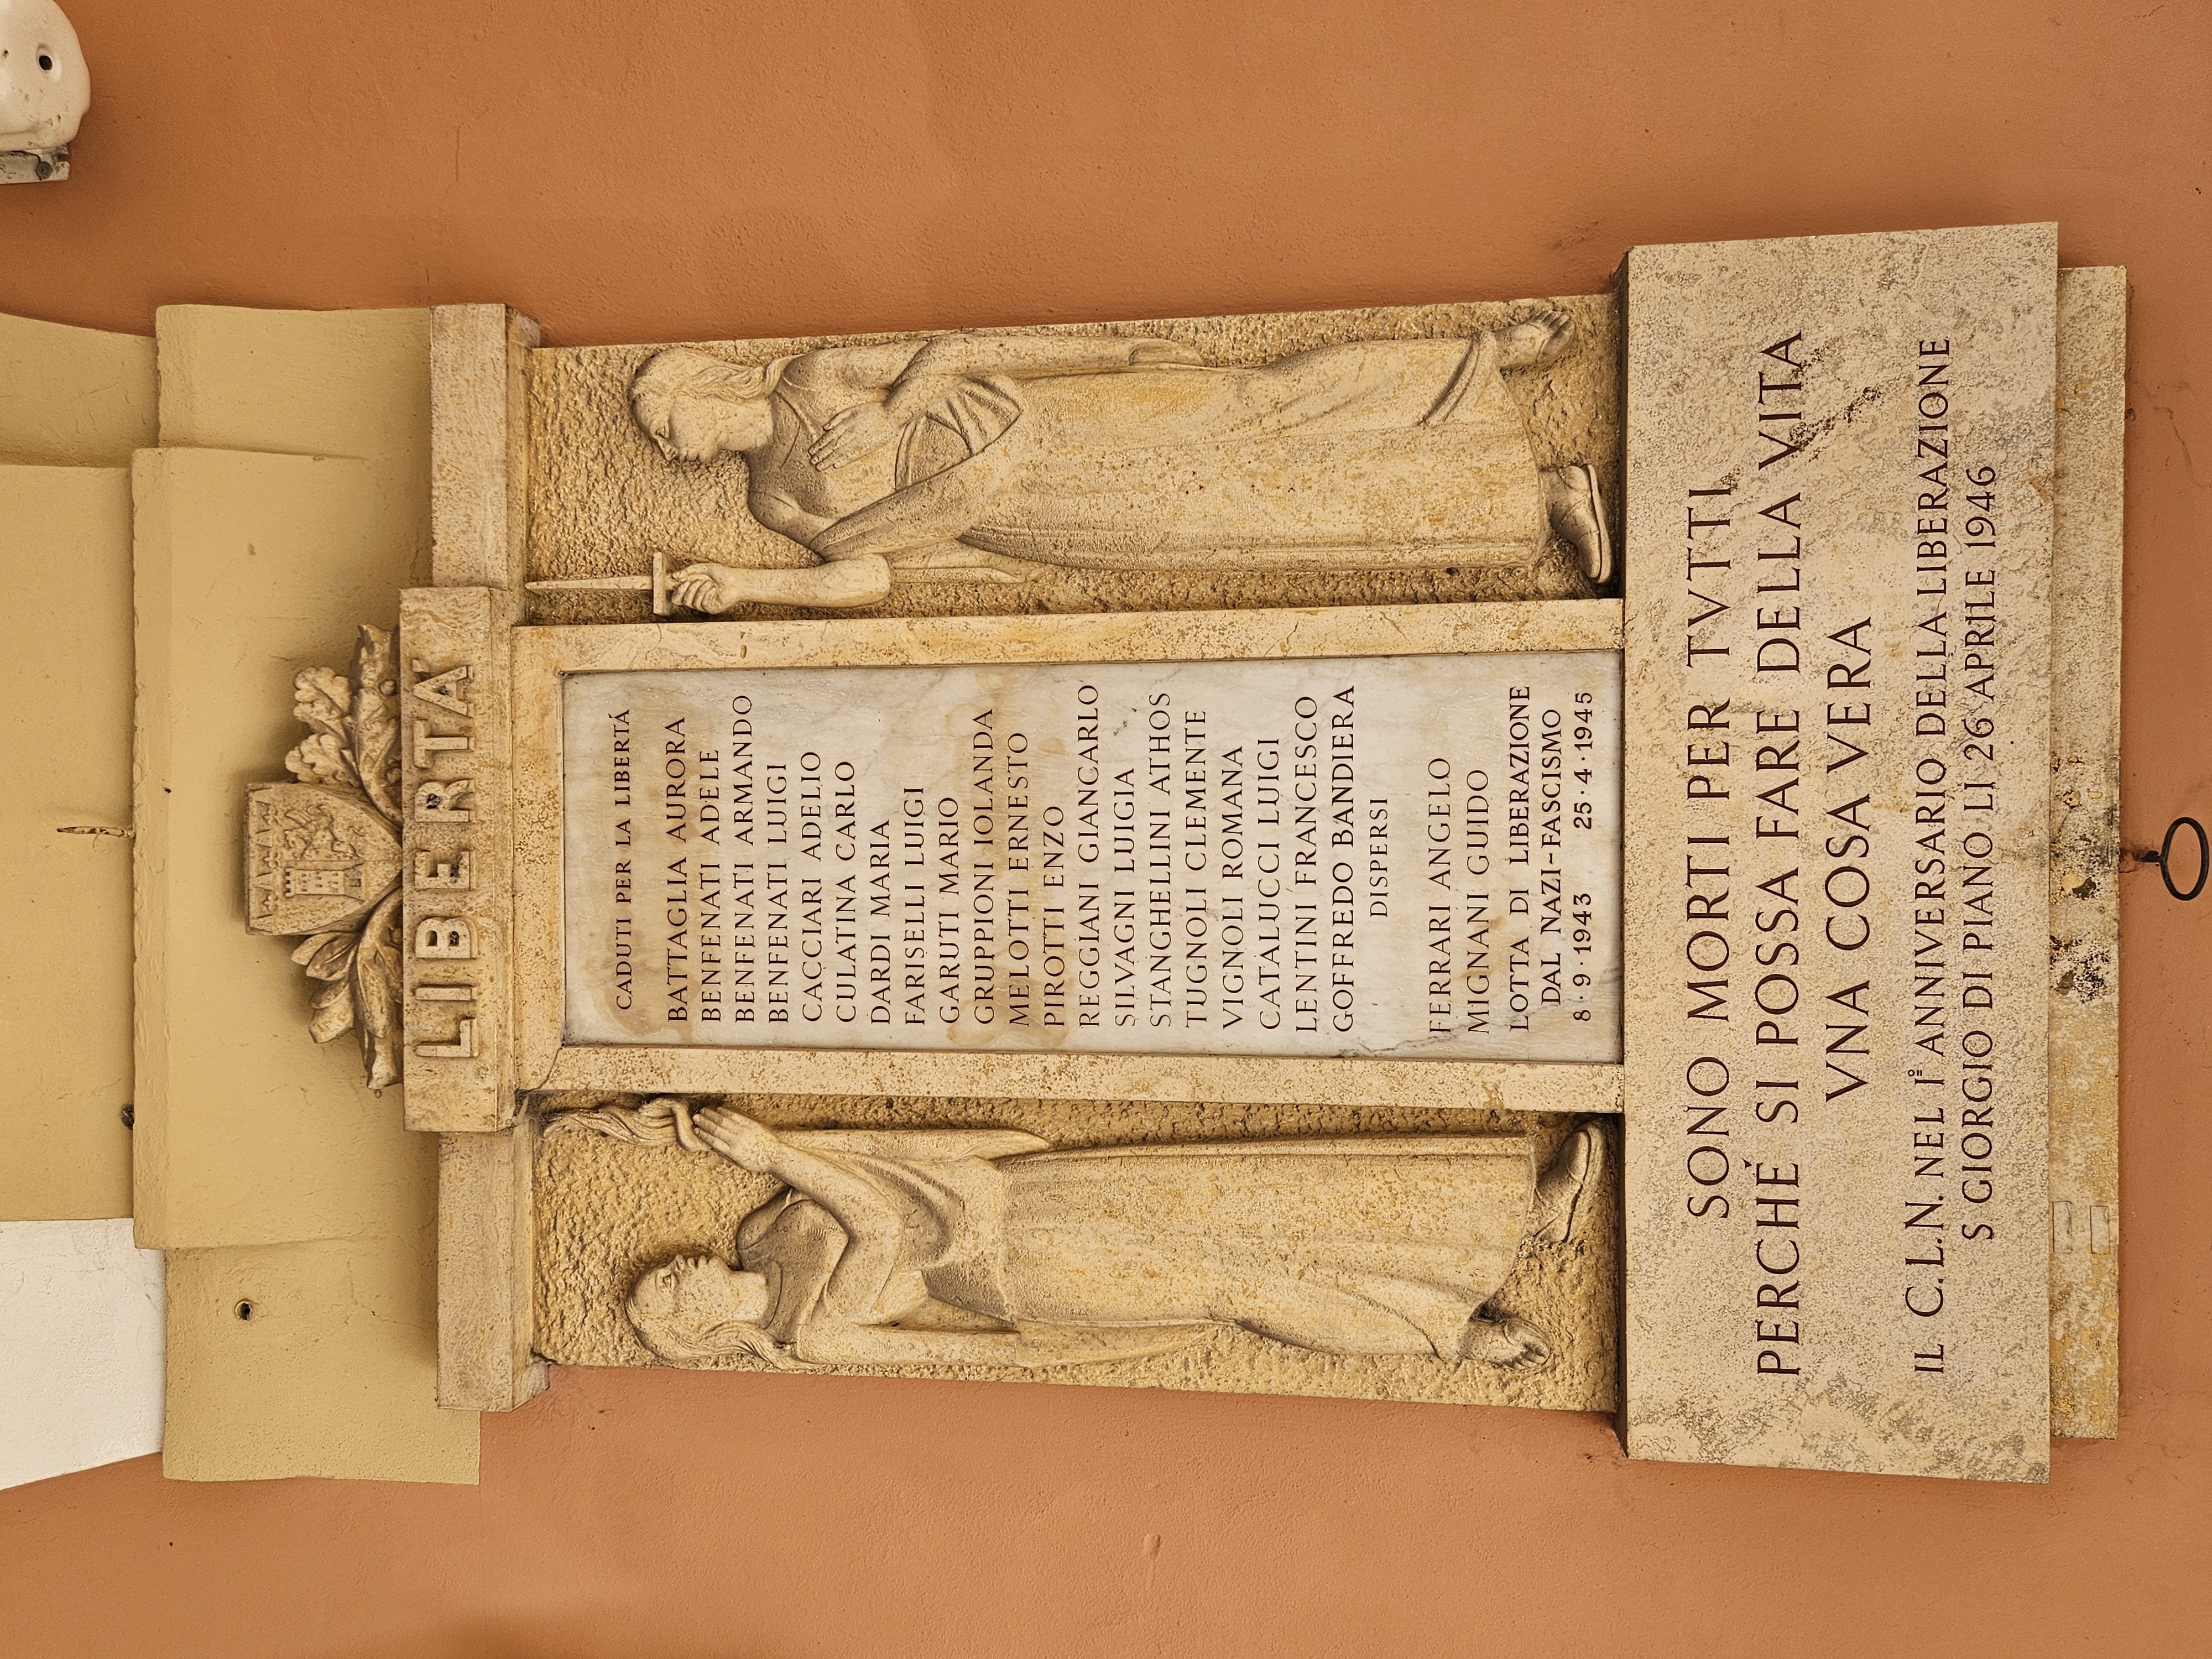 LIBERTÀ
CADUTI PER LA LIBERTÁ
BATTAGLIA AURORA
BENFENATI ADELE
BENFENATI ARMANDO
BENFENATI LUIGI
CACCIARI ADELIO
CULATINA CARLO
DARDI MARIA
FARISELLI LUIGI
GARUTI MARIO
GRUPPIONI IOLANDA
MELOTTI ERNESTO
PIROTTI ENZO
REGGIANI GIANCARLO
SILVAGNI LUIGIA
STANGHELLINI ATHOS
TUGNOLI CLEMENTE
VIGNOLI ROMANA
CATALUCCI LUIGI
LENTINI FRANCESCO
GOFFREDO BANDIERA
DISPERSI
FERRARI ANGELO
MIGNANI GUIDO
LOTTA DI LIBERAZIONE
DAL NAZI-FASCISMO
8·9·1943 25·4·1945
SONO MORTI PER TVTTI
PERCHÉ SI POSSA FARE DELLA VITA
VNA COSA VERA
IL C.L.N. NEL I° ANNIVERSARIO DELLA LIBERAZIONE
S GIORGIO DI PIANO LÌ 26 APRILE 1946